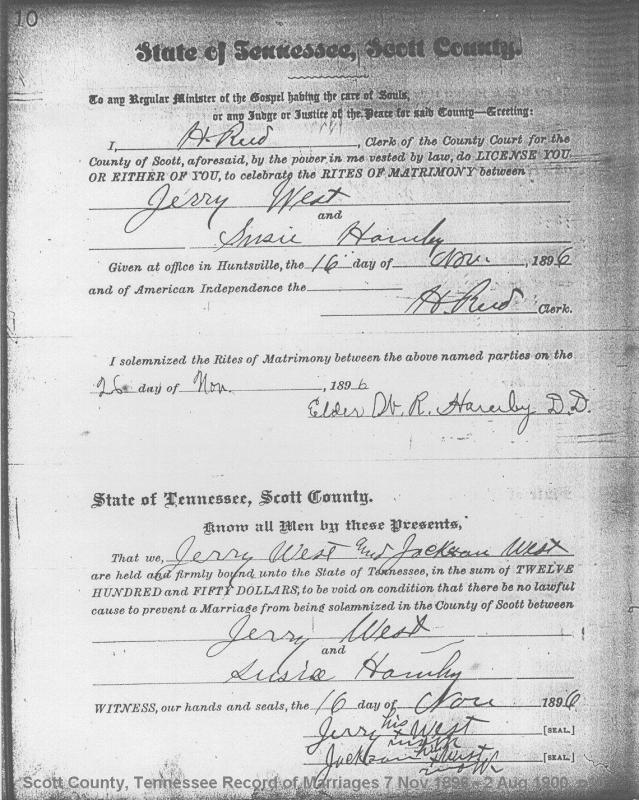 10
State of Tennessee, Scott County.
To any Regular Minister of the Gospel having the care of Souls,
or any Judge or Justice of the Peace for said County—Greeting:
I, H. Reed, Clerk of the County Court for the
County of Scott, aforesaid, by the power in me vested by law, do LICENSE YOU
OR EITHER OF YOU, to celebrate the RITES OF MATRIMONY between
Jerry West
and
Susie Hamby
Given at office in Huntsville, the 16 day of Nov., 1896
and of American Independence the
H. Reed Clerk.
I solemnized the Rites of Matrimony between the above named parties on the
26 day of Nov., 1896
Elder R. Hamby D.D.
State of Tennessee, Scott County.
Know all Men by these Presents,
That we, Jerry West and Jackson West
are held and firmly bound unto the State of Tennessee, in the sum of TWELVE
HUNDRED and FIFTY DOLLARS, to be void on condition that there be no lawful
cause to prevent a Marriage from being solemnized in the County of Scott between
Jerry West
and
Susie Hamby
WITNESS, our hands and seals, the 16 day of Nov 1896
his
Jerry x West [SEAL.]
mark
his
Jackson x West [SEAL.]
mark
Scott County, Tennessee Record of Marriages 7 Nov 1896 - 2 Aug 1900